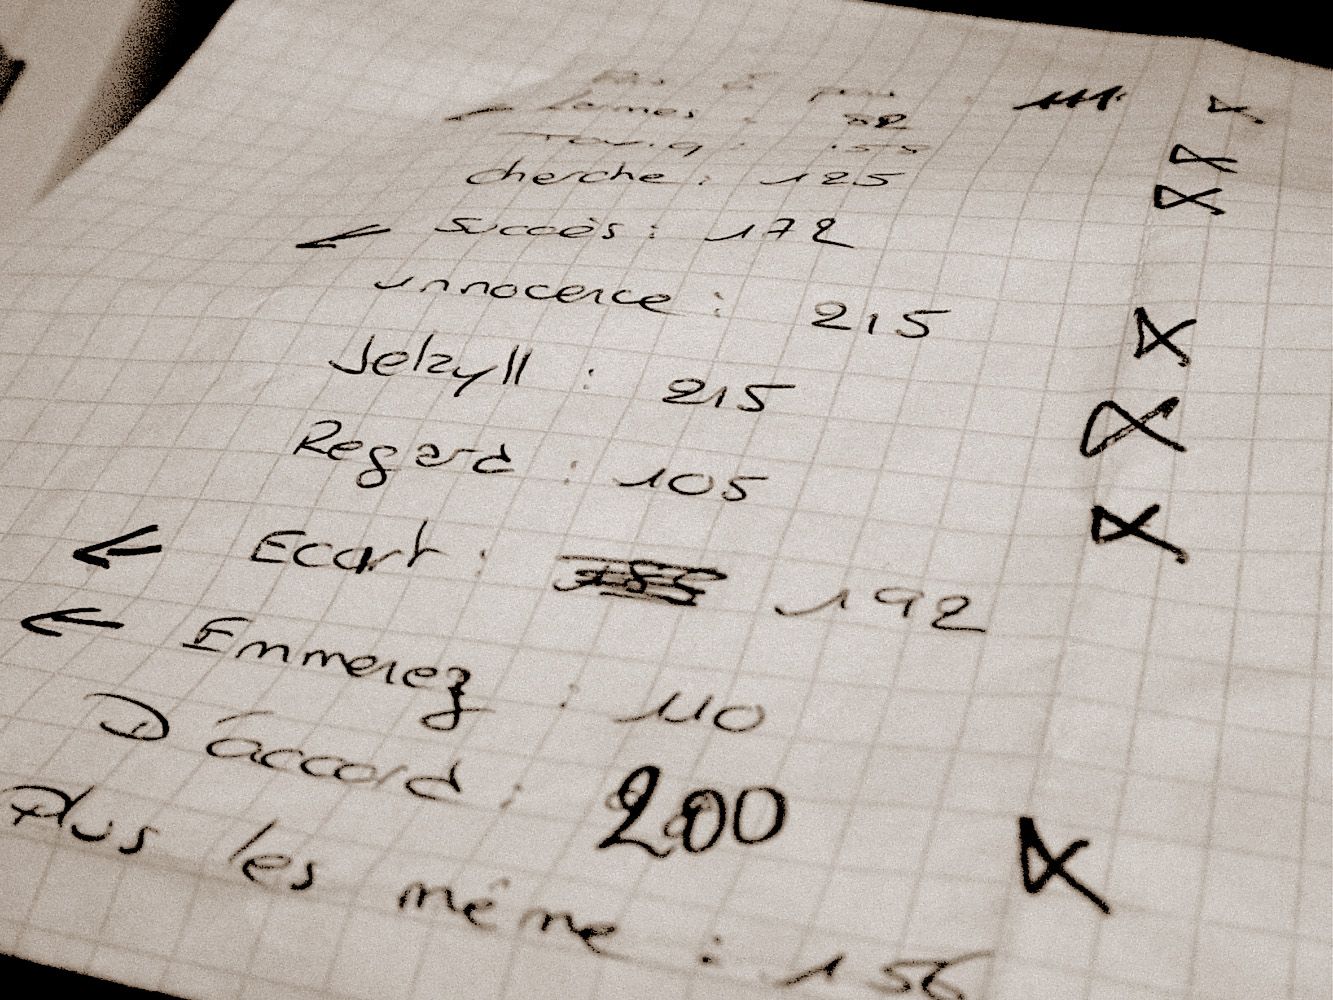 Larmes : 72
cherche : 125
Succès : 172
innocence : 215
Jekyll : 215
Regard : 105
Ecart : 192
Emmenez : 110
D'accord : 200
Plus les même : 156